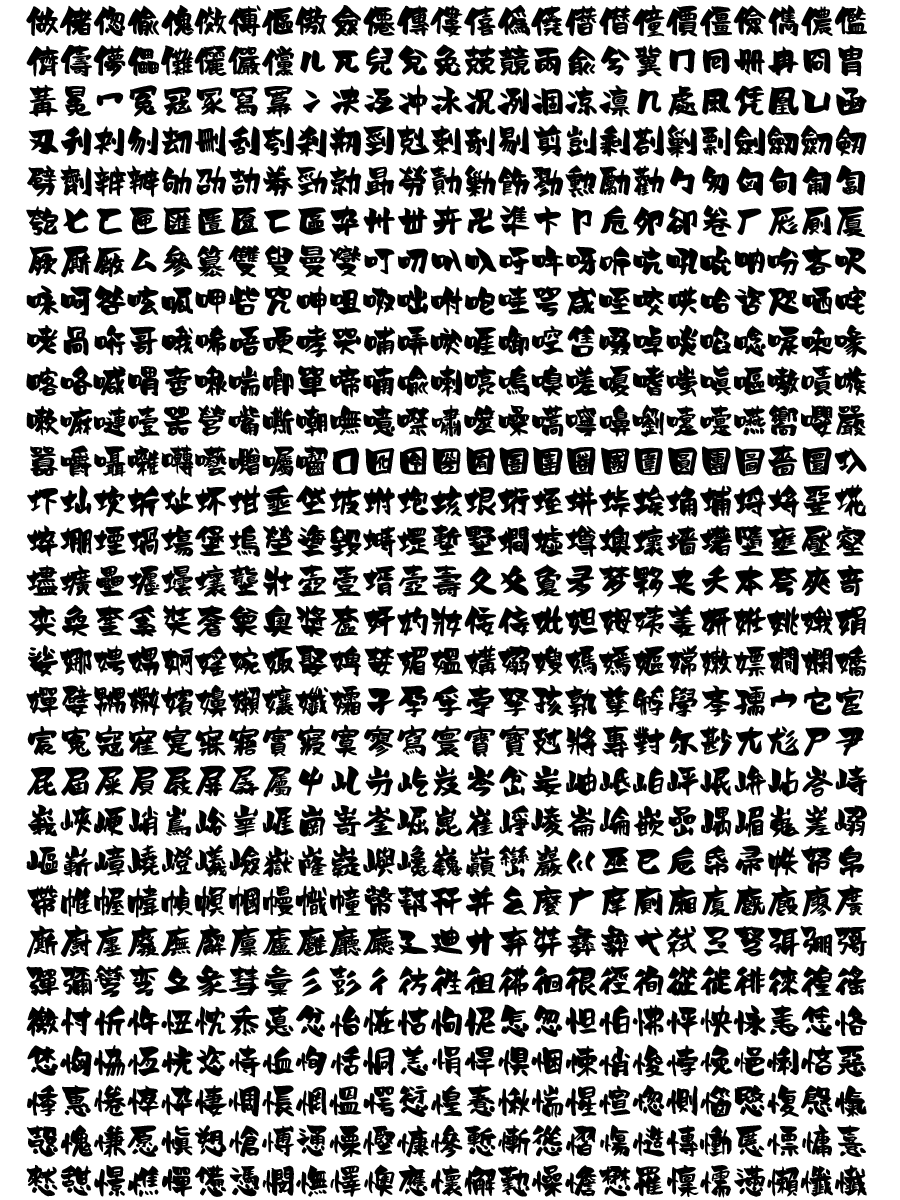 做偖偬偸傀傚傅傴傲僉僊傳僂僖僞僥僭僣僮價僵儉儁儂儖
儕儔儚儡儺儷儼儻儿兀兒兌兔兢競兩兪兮冀冂囘册冉冏冑
冓冕冖冤冦冢冩冪冫决冱冲冰况冽凅凉凛几處凩凭凰凵凾
刄刋刔刎刧刪刮刳刹剏剄剋剌剞剔剪剴剩剳剿剽劍劔劒剱
劈劑辨辧劬劭劼劵勁勍勗勞勣勦飭勠勳勵勸勹匆匈甸匍匐
匏匕匚匣匯匱匳匸區卆卅丗卉卍凖卞卩卮夘卻卷厂厖厠厦
厥厮厰厶參簒雙叟曼燮叮叨叭叺吁吽呀听吭吼吮吶吩吝呎
咏呵咎呟呱呷呰咒呻咀呶咄咐咆哇咢咸咥咬哄哈咨咫哂咤
咾咼哘哥哦唏唔哽哮哭哺哢唹啀啣啌售啜啅啖啗唸唳啝喙
喀咯喊喟啻啾喘喞單啼喃喩喇喨嗚嗅嗟嗄嗜嗤嗔嘔嗷嘖嗾
嗽嘛嗹噎噐營嘴嘶嘲嘸噫噤嘯噬噪嚆嚀嚊嚠嚔嚏嚥嚮嚶嚴
囂嚼囁囃囀囈囎囑囓囗囮囹圀囿圄圉圈國圍圓團圖嗇圜圦
圷圸坎圻址坏坩埀垈坡坿垉垓垠垳垤垪垰埃埆埔埒埓堊埖
埣堋堙堝塲堡塢塋塰毀塒堽塹墅墹墟墫墺壞墻墸墮壅壓壑
壗壙壘壥壜壤壟壯壺壹壻壼壽夂夊夐夛梦夥夬夭夲夸夾竒
奕奐奎奚奘奢奠奧奬奩奸妁妝佞侫妣妲姆姨姜妍姙姚娥娟
娑娜娉娚婀婬婉娵娶婢婪媚媼媾嫋嫂媽嫣嫗嫦嫩嫖嫺嫻嬌
嬋嬖嬲嫐嬪嬶嬾孃孅孀孑孕孚孛孥孩孰孳孵學斈孺宀它宦
宸寃寇寉寔寐寤實寢寞寥寫寰寶寳尅將專對尓尠尢尨尸尹
屁屆屎屓屐屏孱屬屮乢屶屹岌岑岔妛岫岻岶岼岷峅岾峇峙
峩峽峺峭嶌峪崋崕崗嵜崟崛崑崔崢崚崙崘嵌嵒嵎嵋嵬嵳嵶
嶇嶄嶂嶢嶝嶬嶮嶽嶐嶷嶼巉巍巓巒巖巛巫已巵帋帚帙帑帛
帶帷幄幃幀幎幗幔幟幢幤幇幵并幺麼广庠廁廂廈廐廏廖廣
廝廚廛廢廡廨廩廬廱廳廰廴廸廾弃弉彝彜弋弑弖弩弭弸彁
彈彌彎弯彑彖彗彙彡彭彳彷徃徂彿徊很徑徇從徙徘徠徨徭
徼忖忻忤忸忱忝悳忿怡恠怙怐怩怎怱怛怕怫怦怏怺恚恁恪
恷恟恊恆恍恣恃恤恂恬恫恙悁悍惧悃悚悄悛悖悗悒悧悋惡
悸惠惓悴忰悽惆悵惘慍愕愆惶惷愀惴惺愃愡惻惱愍愎慇愾
愨愧慊愿愼愬愴愽慂慄慳慷慘慙慚慫慴慯慥慱慟慝慓慵憙
憖憇憬憔憚憊憑憫憮懌懊應懷懈懃懆憺懋罹懍懦懣懶懺懴